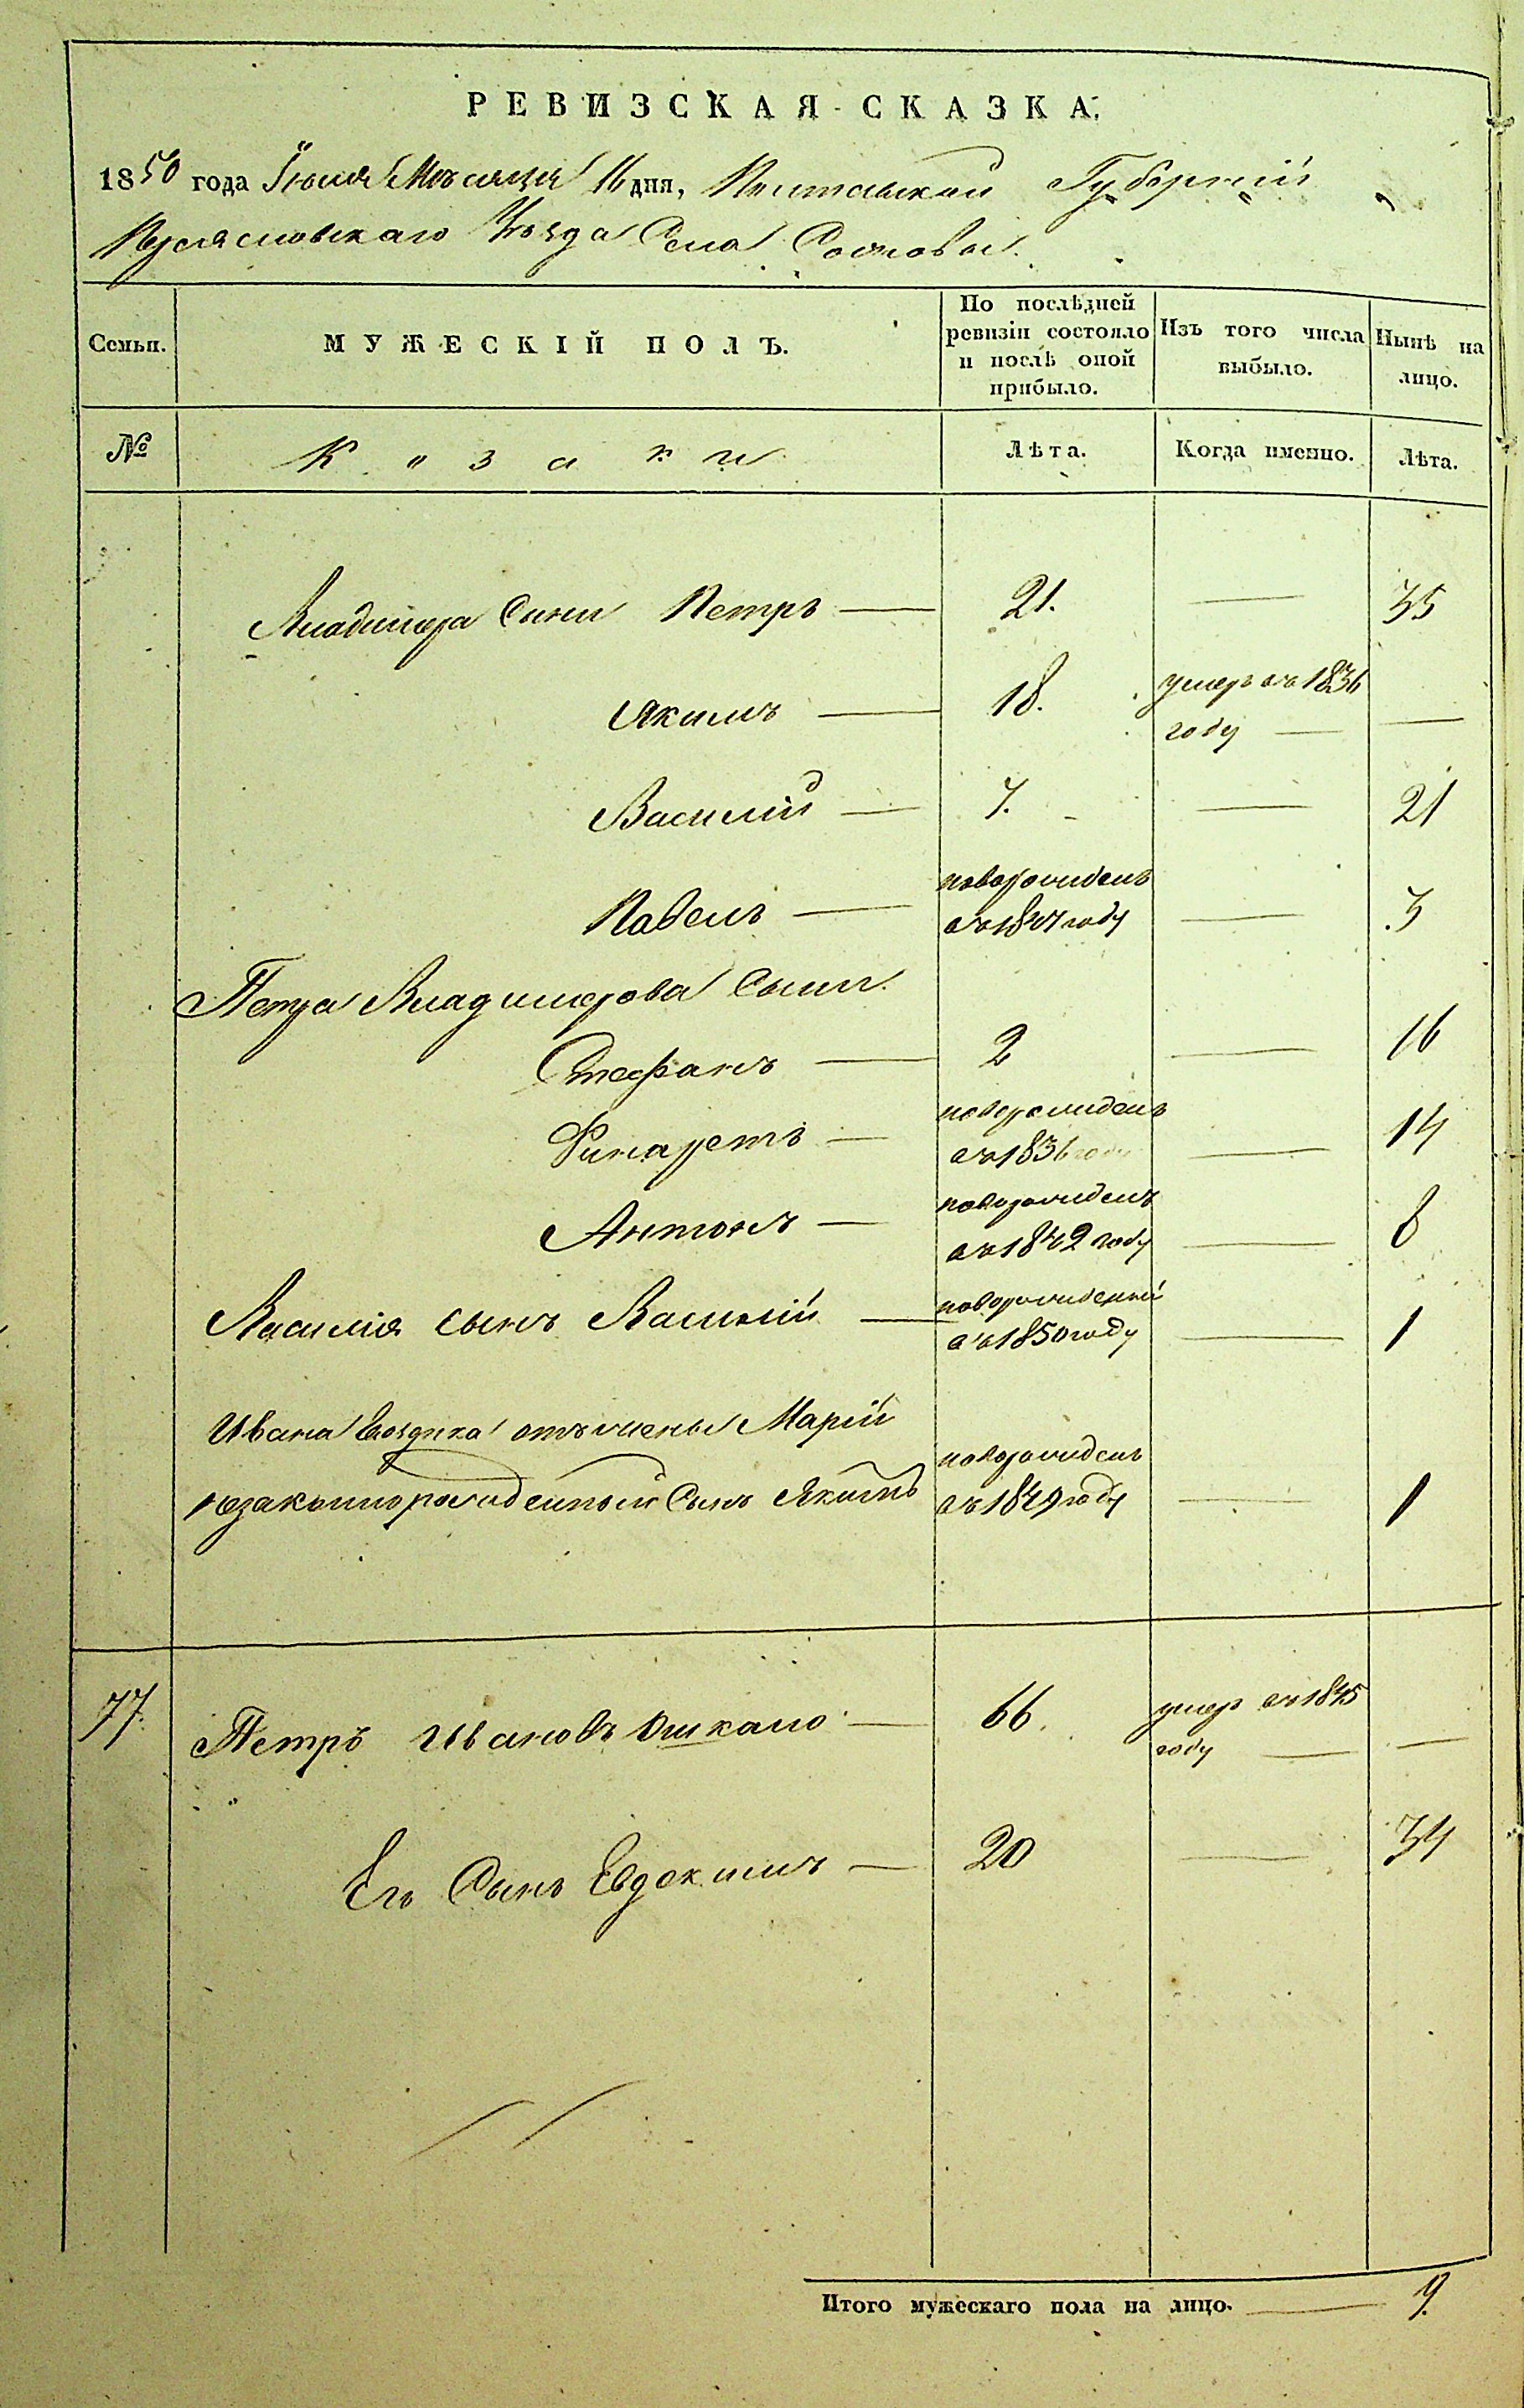 РЕВИЗСКАЯ СКАЗКА.
1850 года Іюня Мѣсяца 16 дня, Полтавской Губерніи
Переяславскаго Уѣзда Села Сосновы.
Семьи.
МУЖЕСКІЙ ПОЛЪ.
По послѣдней ревизіи состояло и послѣ оной прибыло.
Изъ того числа выбыло.
Нынѣ на лицо.
№
Козаки
Лѣта.
Когда именно.
Лѣта.
Владимера Сыны Петръ — 21. — 35
Якимъ — 18. умеръ въ 1836
году — —
Василій — 7. — 21
Павелъ — новорожденъ
въ 1847 году — 3
Петра Владимерова Сыны
Стефанъ — 2 — 16
Филаретъ — новорожденъ
въ 1836 году — 14
Антонъ — новорожденъ
въ 1842 году — 8
Василія сынъ Василій — новорожденный
въ 1850 году — 1
Ивана отъ жены Маріи
незаконнорожденный Сынъ Якимъ новорожденъ
въ 1849 году — 1
77. Петръ Ивановъ Ошкало — 66. умеръ въ 1845
году — —
Его Сынъ Евдокимъ — 20 — 34
Итого мужескаго пола на лицо. — 9.